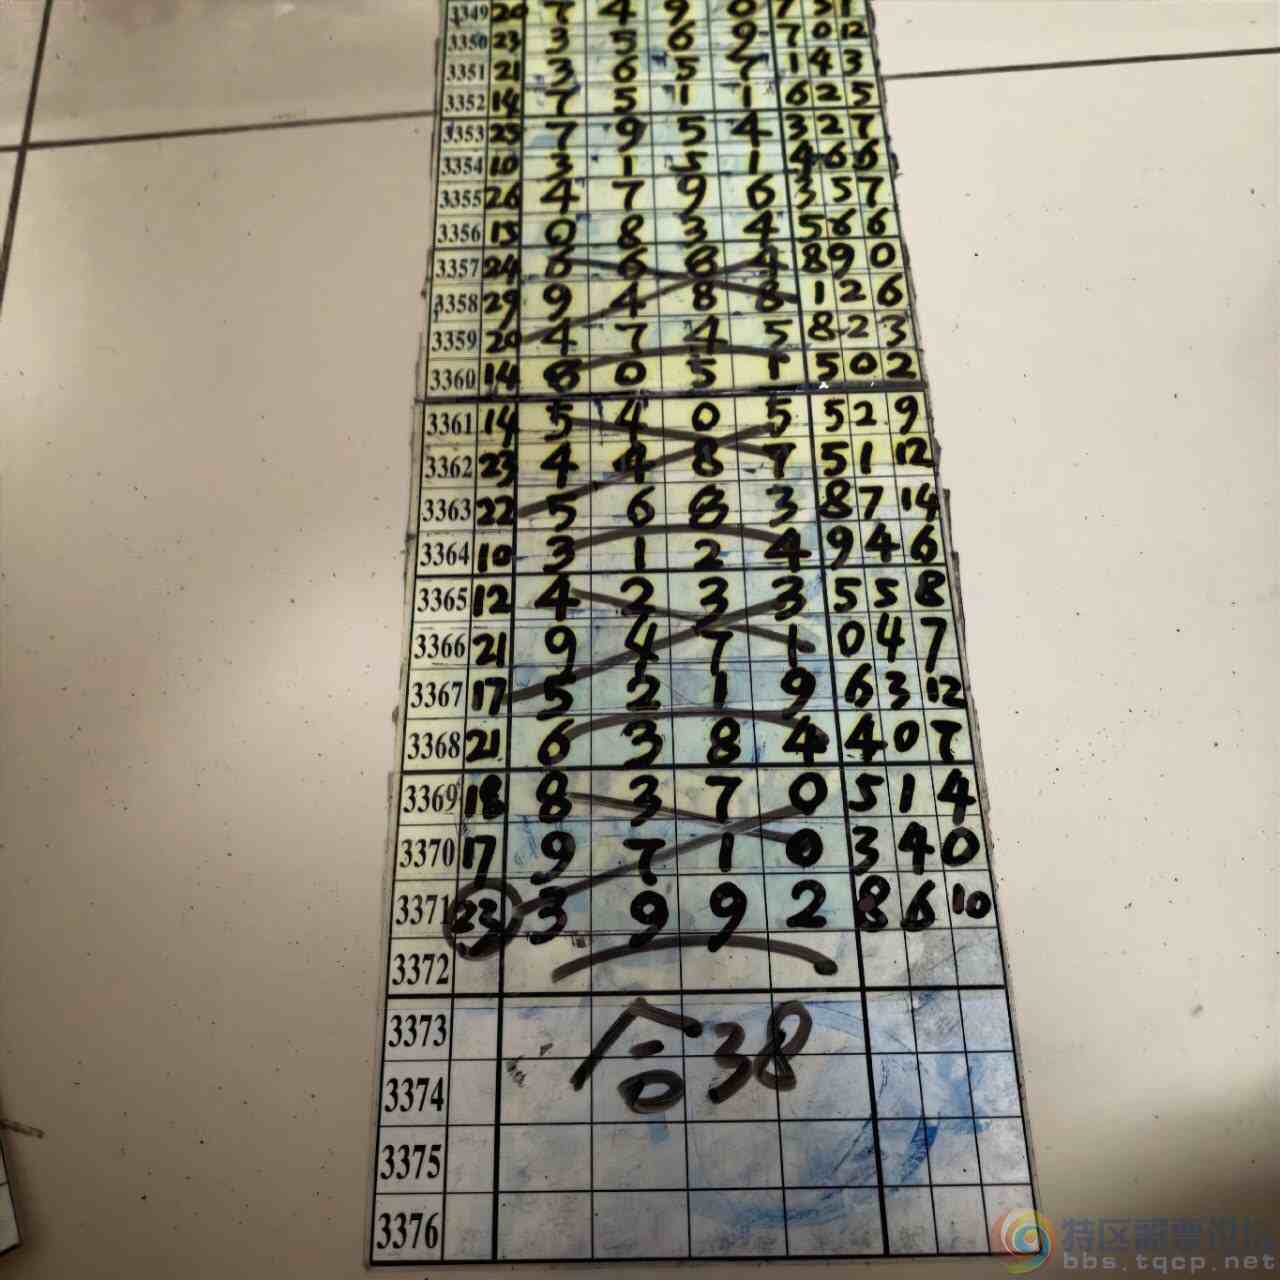 3349 20 7 4 9 0 7 5 1
3350 23 3 5 6 9 7 0 12
3351 21 3 6 5 7 1 4 3
3352 14 7 5 1 1 6 2 5
3353 25 7 9 5 4 3 2 7
3354 10 3 1 5 1 4 6 6
3355 26 4 7 9 6 3 5 7
3356 15 0 8 3 4 5 6 6
3357 24 6 6 8 4 8 9 0
3358 29 9 4 8 8 1 2 6
3359 20 4 7 4 5 8 2 3
3360 14 8 0 5 1 5 0 2
3361 14 5 4 0 5 5 2 9
3362 23 4 4 8 7 5 1 12
3363 22 5 6 8 3 8 7 14
3364 10 3 1 2 4 9 4 6
3365 12 4 2 3 3 5 5 8
3366 21 9 4 7 1 0 4 7
3367 17 5 2 1 9 6 3 12
3368 21 6 3 8 4 4 0 7
3369 18 8 3 7 0 5 1 4
3370 17 9 7 1 0 3 4 0
3371 23 3 9 9 2 8 6 10
3372
3373 合38
3374
3375
3376
特区彩票论坛
bbs.tqcp.net